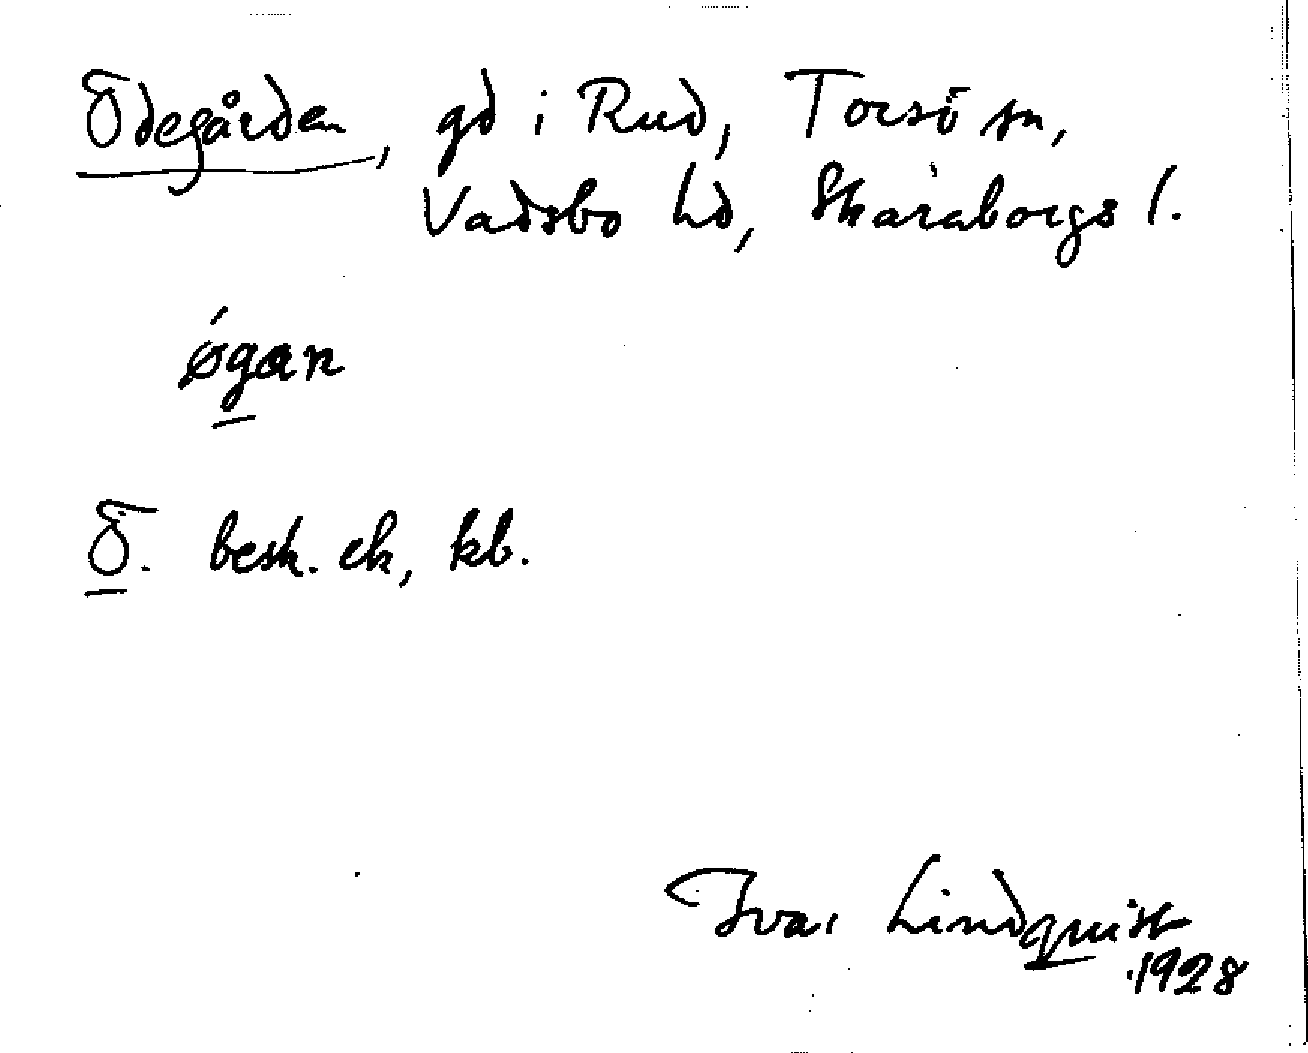 Ödegården, gd i Rud, Torsö sn,
Vadsbo hd, Skaraborgs l.
ǿgan
Ö. besk. ek, kb.
Ivar Lindquist
1928